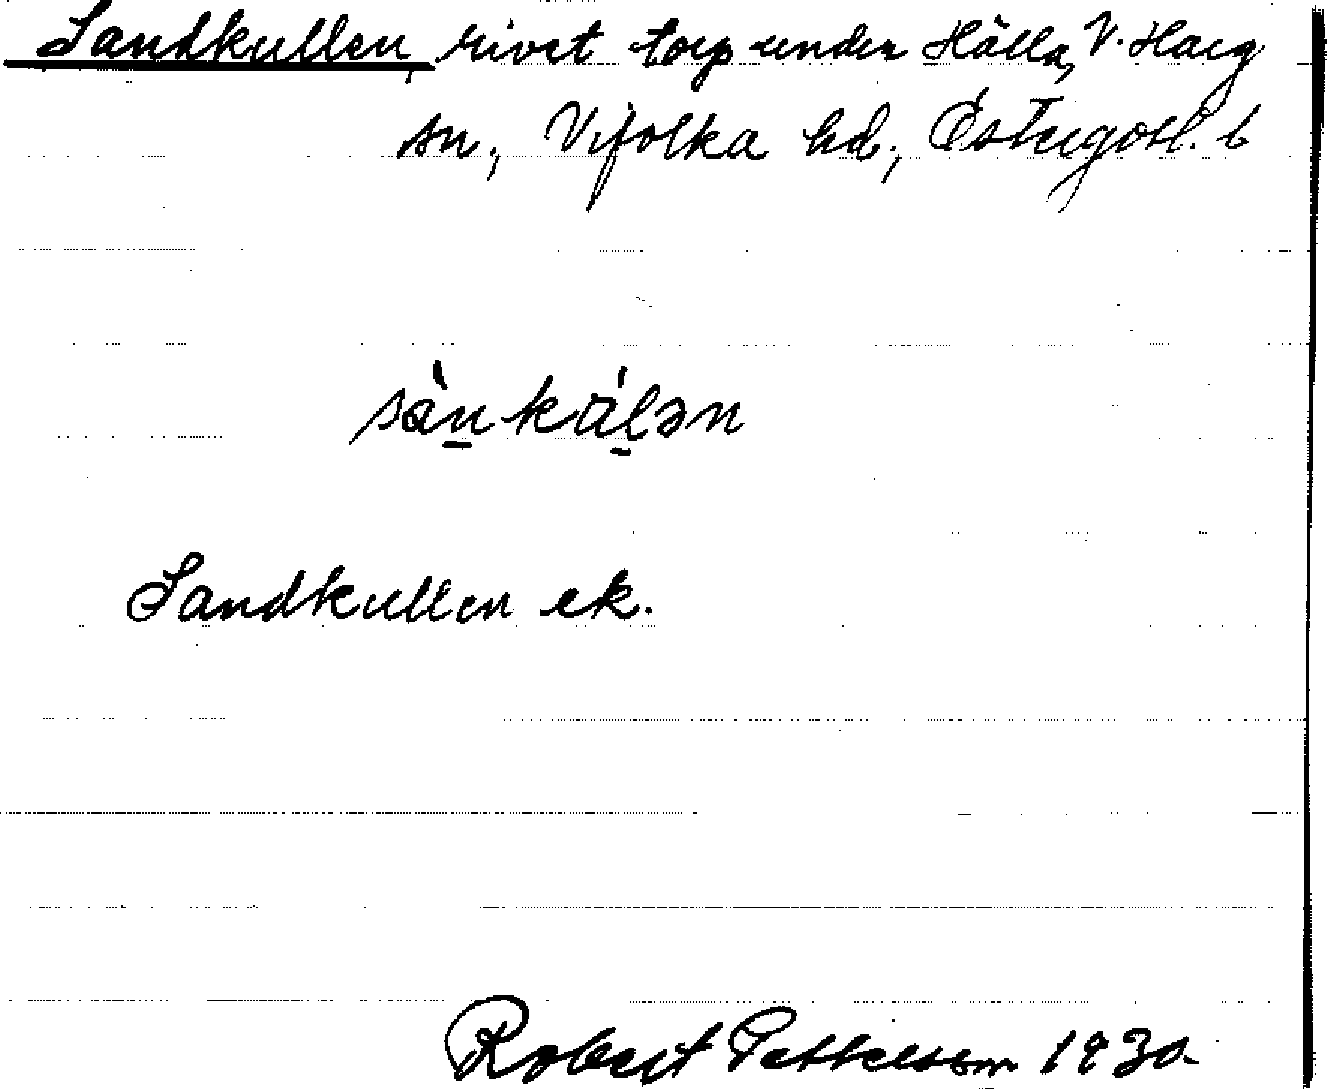 Sandkullen, rivet torp under Hälla, V. Harg
sn., Vifolka hd., Östergötl. l
sàn̲kúl̲ən
Sandkullen ek.
Robert Pettersson 1930